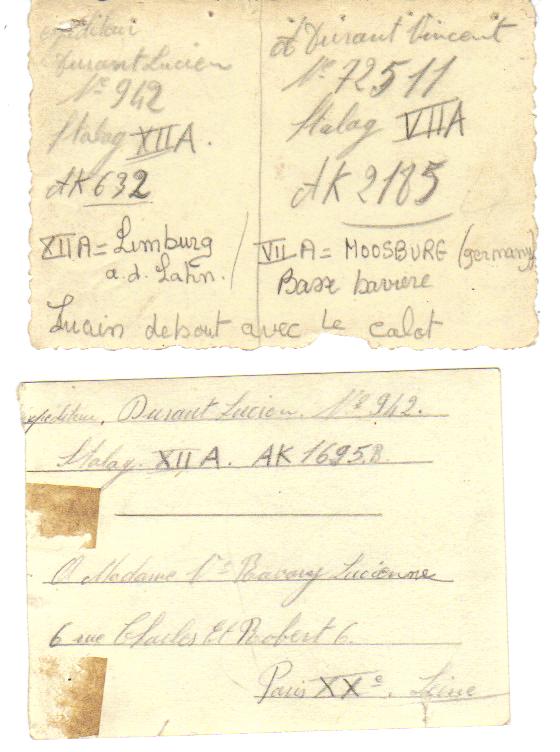 expéditeur
Durant Lucien
N° 942
Stalag XII A.
AK 632
à Durant Vincent
N° 72511
Stalag VII A
AK 2185
XII A = Limburg
a.d. Lahn. /
VII A = MOOSBURG (germany)
Basse baviere
Lucien debout avec le calot
expéditeur, Durant Lucien. N° 942.
Stalag. XII A. AK 1695.B.
A Madame Vve Ravary Lucienne
6 rue Charles Et Robert 6.
Paris XXe. Seine